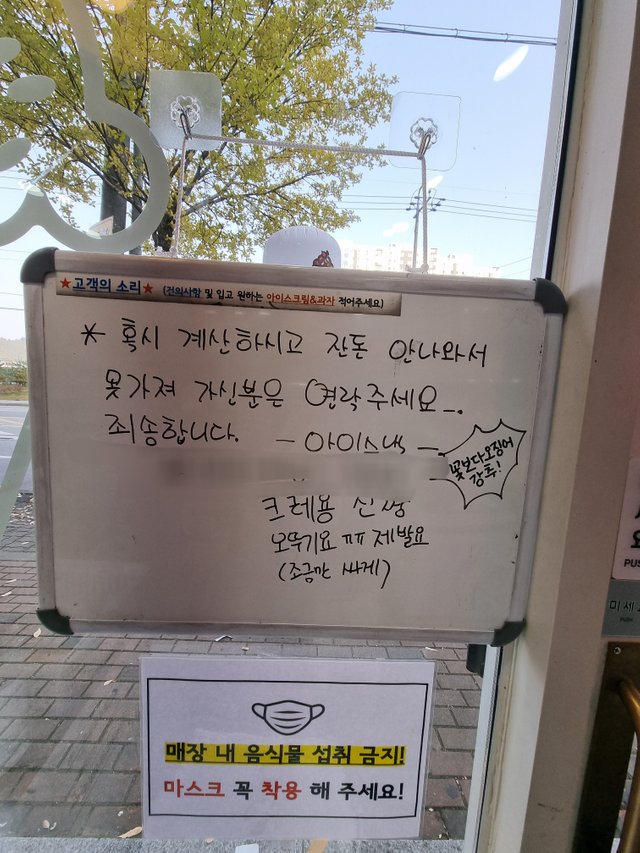 ★고객의 소리★ (건의사항 및 입고 원하는 아이스크림&과자 적어주세요)
* 혹시 계산하시고 잔돈 안나와서
못가져 가신분은 연락주세요..
죄송합니다. - 아이스낵 -
꽃보다오징어
강추!
크레용 신짱
오뚜기요 ㅠㅠ 제발요
(조금만 싸게)
매장 내 음식물 섭취 금지!
마스크 꼭 착용 해 주세요!
미세
PUSH